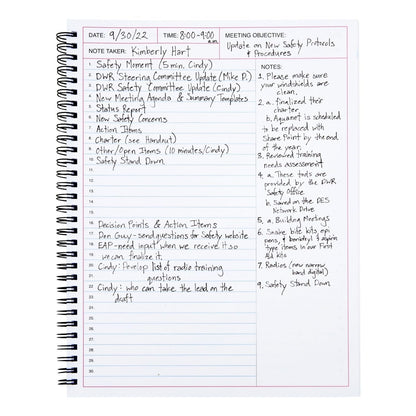 DATE: 9/30/22
TIME: 8:00-9:00 a.m.
MEETING OBJECTIVE:
Update on New Safety Protocols
& Procedures
NOTE TAKER: Kimberly Hart
1 Safety Moment (5 min. Cindy)
2 DWR Steering Committee Update (Mike D.)
3 DWR Safety Committee Update (Cindy)
4 New Meeting Agenda & Summary Templates
5 Status Report
6 New Safety Concerns
7 Action Items
8 Charter (see Handout)
9 Other/Open Items (10 minutes/Cindy)
10 Safety Stand Down
11
12
13
14
15
16 Decision Points & Action Items
17 Dan Guy - send questions for Safety website
18 EAP - need input when we receive it so
19 we can finalize it.
20 Cindy: Develop list of radio training
21 questions
22 Cindy: who can take the lead on the
23 draft
24
25
26
27
28
29
30
NOTES:
1. Please make sure
your windshields are
clean.
2. a. finalized their
charter.
b. Aquanet is scheduled
to be replaced with
Share Point by the end
of the year.
3. Reviewed training
needs assessment
4. a. These tests are
provided by the DWR
Safety Office
b. Saved on the DES
Network Drive
5. a. Building Meetings
6. Snake bite kits, epi
pens, & benadryl &
type items in our First
Aid kits
7. Radios (new narrow
band digital)
9. Safety Stand Down